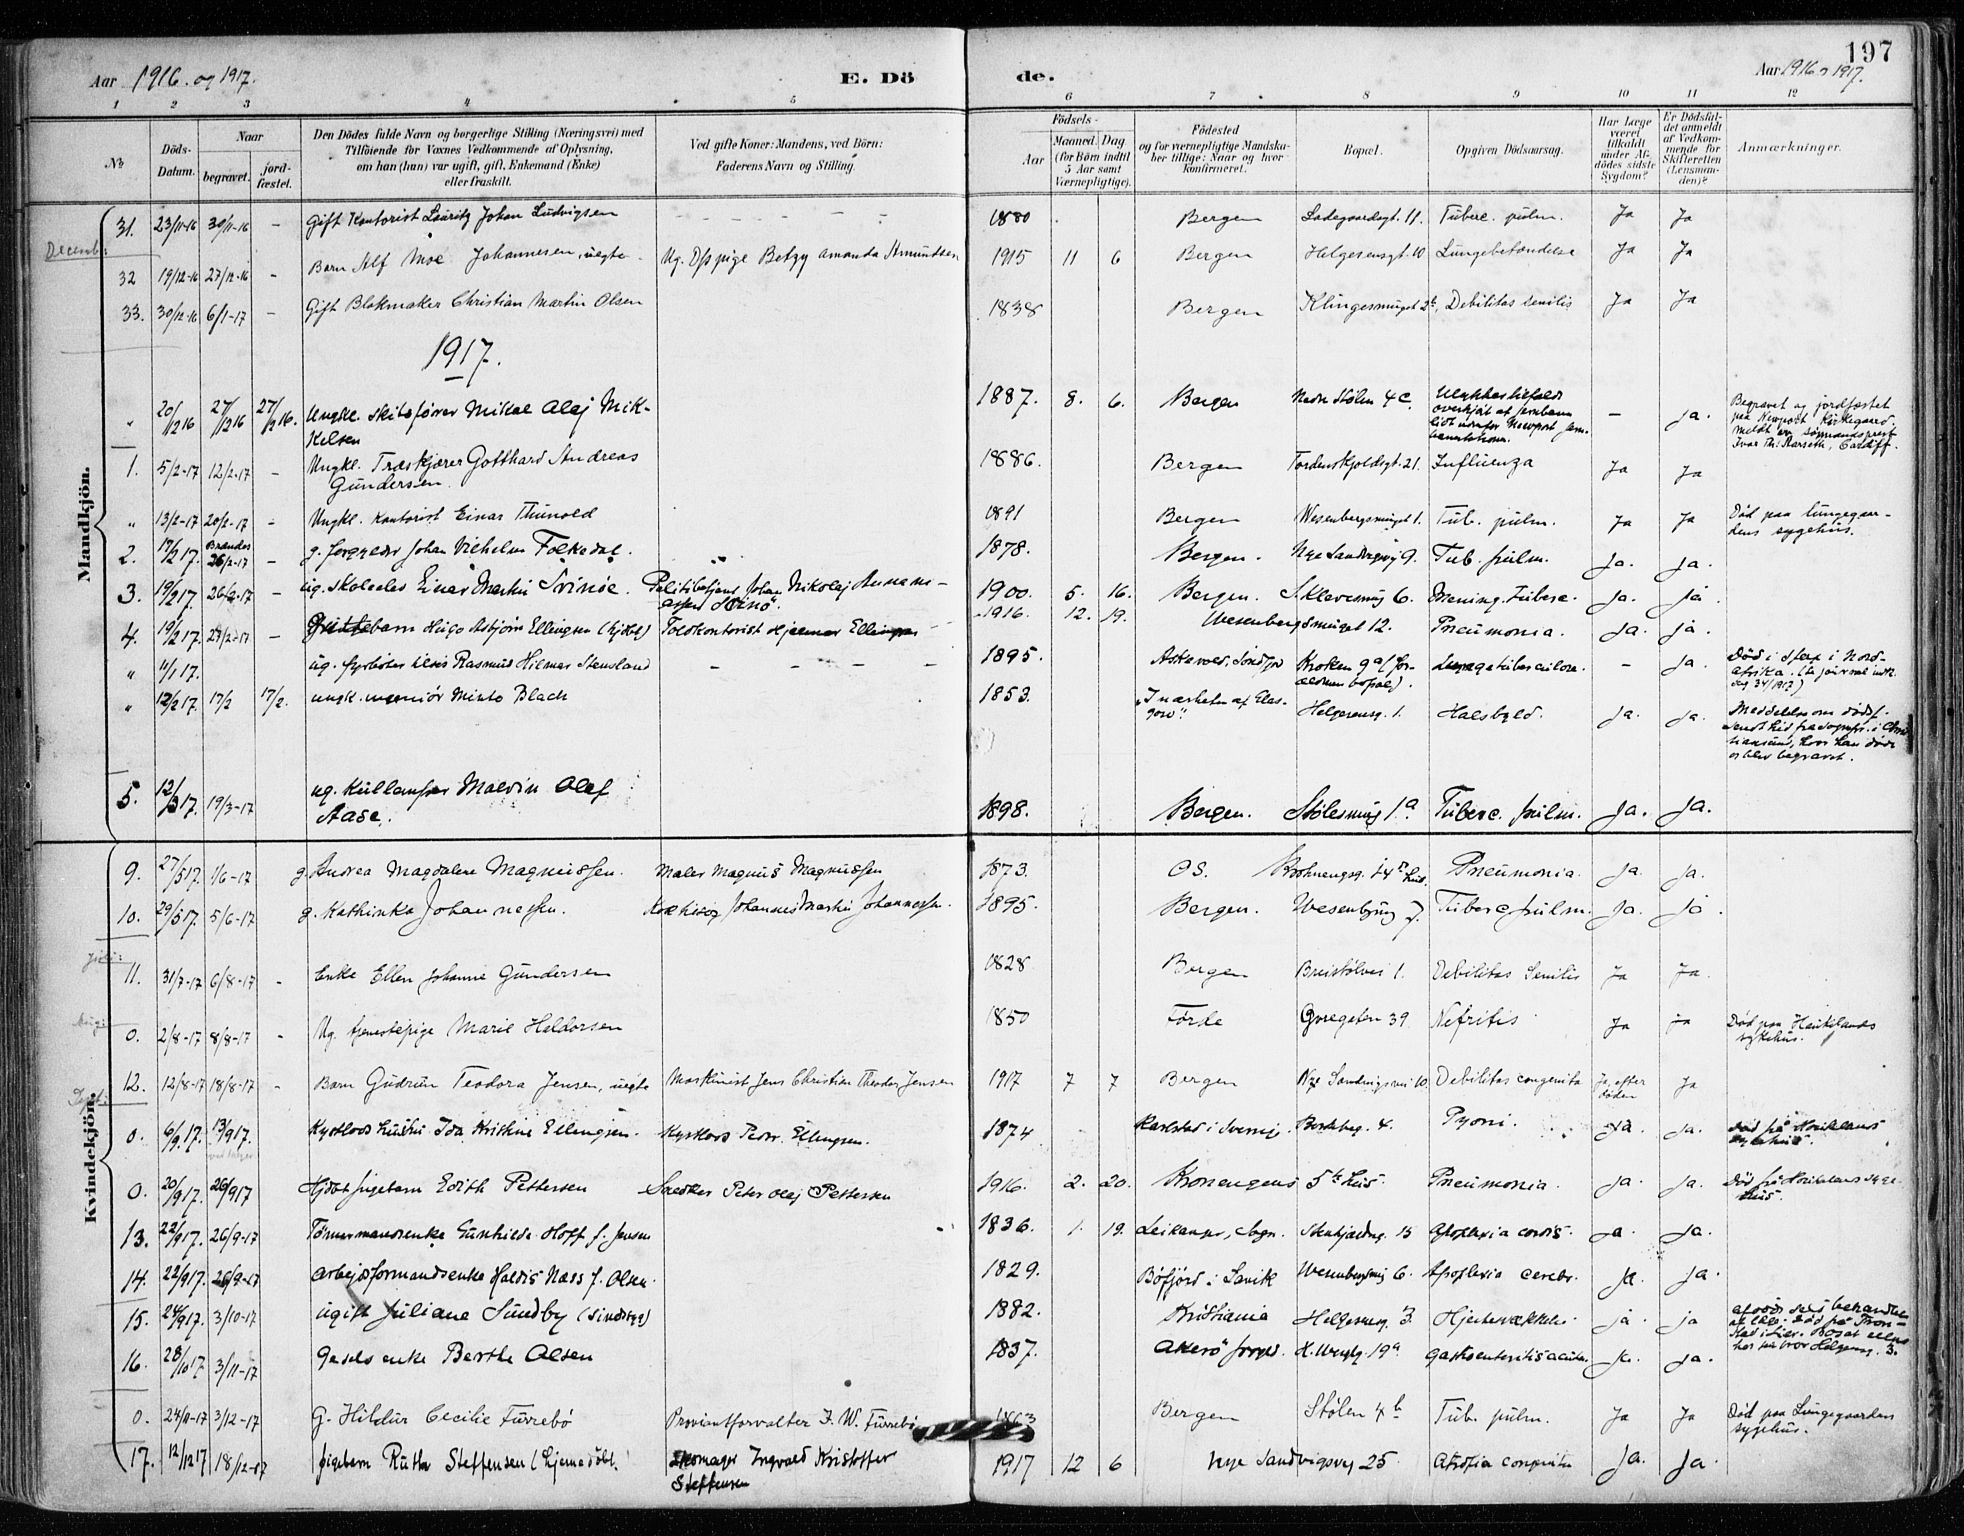 197
Aar 1916. og 1917.
E. Döde.
Aar 1916 og 1917.
1 2 3 4 5 6 7 8 9 10 11 12
No
Döds-Datum.
Naar
begravet.
jordfæstet.
Den Dödes fulde Navn og borgerlige Stilling (Næringsvei) med
Tilföiende for Voxnes Vedkommende af Oplysning,
om han (hun) var ugift, gift, Enkemand (Enke)
eller fraskilt.
Ved gifte Koner: Mandens, ved Börn:
Faderens Navn og Stilling.
Födsels-
Aar
Maaned. Dag
(for Börn indtil
5 Aar samt
Værnepligtige).
Födested
og for værnepligtige Mandska-
ber tillige: Naar og hvor
konfirmeret.
Bopæl.
Opgiven Dödsaarsag.
Har Læge
været
tilkaldt
under Af-
dödes sidste
Sygdom?
Er Dödsfal-
det anmeldt
af Vedkom-
mende for
Skifteretten
(Lensman-
den)?
Anmærkninger.
Mandkjön.
31. 23/11-16 30/11-16 - Gift Kontorist Lauritz Johan Ludvigsen - - - - 1880 Bergen Ladegaardsgt. 11. Tuberc. pulm. Ja Ja
32 19/12-16 27/12-16 - Barn Alf Moe Johannesen, uegte. Ug. Pige Betzy Amanda Amundsen 1915 11 6 Bergen Helgesensgt. 10 Lungebetændelse Ja Ja
33. 30/12-16 6/1-17 - Gift Blokmaker Christian Martin Olsen 1838 Bergen Klingesmuget 2b, Debilitas senilis Ja Ja
1917.
" 20/12 16 27/12 16 27/12 16. Ungkl. Skibsfører Mikal Olaj Mikkelsen 1887. 8. 6. Bergen Nedre Stølen 4c. Ulykkestilfælde overkjørt af jernbane - Ja. Begravet og jordfæstet paa Newport Kirkegaard. meldt av sømandsprest Ivar Th. Aarseth, Cardiff.
1. 5/2-17 12/2-17 - Ungkl. Træskjærer Gotthard Andreas Gundersen. 1886. Bergen Tordenskjoldsgt. 21. Influenza Ja Ja
" 13/2-17 20/2-17 - Ungkl. Kontorist Einar Thunold 1891 Bergen Wesenbergsmuget 1. Tub. pulm. Ja Ja Død paa Lungegaardens sygehus.
2. 17/2 17. Brændes 26/2-17 - g. forgylder Johan Vilhelm Folkedal. " 1878. Bergen. Nye Sandvigsvej 9. Tub. pulm. Ja. Ja.
3. 19/2 17. 26/2-17 - ug. skoleelev Einar Martin Svinøe. Politibetjent Johan Nikolaj Svinö. 1900. 5. 16. Bergen. Sklevesmug 6. Mening. Tuberc. Ja. Ja
4. 19/2 17. 27/2-17 - Guttebarn Hugo Asbjörn Ellingsen Toldkontorist Hjalmar Ellingsen 1916. 12. 19. Wesenbergsmuget 12. Pneumonia. Ja. Ja.
" 11/1 17. ug. fyrbøter Rasmus Hilmar Stensland - - - - 1895. Kroken 9a - Ja. Død i Sfax i Nordafrika.
" 12/2 17. 17/2 17/2. ungk. Minto Blach 1853. "I nærheten af Glasgow" Helgesensg. 1. Halsbyld. Ja. Ja. Meddelelse om dödsf. sendt hid fra sognepr. i Christiansund, hvor han døde og blev begravet.
5. 12/3 17. 19/3-17 ug. Malvin Olaf Aase. 1898. Bergen. Stølesmug 1a Tuberc. pulm. Ja. Ja.
Kvindekjön.
9. 27/5 17. 1/6-17 g. Andrea Magdalene Magnussen. Maler Magnus Magnussen 1873. OS. Pneumonia. Ja. Ja.
10. 29/5 17. 5/6-17 g. Kathinka Johannessen. Johannes Martin Johannessen. 1895. Bergen. Wesenbgmug 7. Tuberc. pulm. Ja. Ja.
Juli:
11. 31/7-17 6/8-17 - Enke Ellen Johanne Gundersen 1828 Bergen Breistølvei 1. Debilitas Senilis Ja Ja.
Aug:
0. 2/8-17 8/8-17 - Ug. tjenestepige Marie Haldorsen 1850 Førde Øvregaten 39 Nefritis Ja Ja Død paa Haukelands sykehus.
12. 12/8-17 18/8-17 - Barn Gudrun Teodora Jensen, uegte Maskinist Jens Christian Theodor Jensen 1917 7 7 Bergen Nye Sandvigsvei 10. Debilitas congenita Ja, efter døden Ja
Sept:
0. 6/9.17. 13/9 17. Kystlods hustru Ida Kristine Ellingsen. Kystlods Peder Ellingsen. 1874 Karlstad i Sverige Ja. Ja. Død på Haukelands sykehus.
0. 20/9 17. 26/9 17 Edith Pettersen Snedker Peter Olaj Pettersen 1916. 2. 20. Kronengens 5te hus Pneumonia. Ja. Ja. Død på Haukelands sygehus.
13. 22/9 17. 26/9-17 Tømmermandsenke Gunhilde Hoff f. Jensen 1836. 1. 19. Leikanger, Sogn. Apoplexia cordis. Ja. Ja.
14. 22/9 17. 26/9-17 Arbejdsformandsenke Haldis Næss f. Olsen. 1829. Wesenbergsmug 6. Apoplexia cerebr. Ja. Ja.
15. 24/9 17. 3/10-17 ugift Juliane Sundby 1882. Kristiania Helgesensg. 3. Ja Ja
16. 28/10 17. 3/11-17 Gesels enke Berthe Olsen 1837. Akerö Gastroenteritis acuta. Ja. Ja.
0. 24/11-17 3/12-17 G. Hildur Cecilie Furrebø Proviantforvalter J. W. Furrebø Bergen Stølen 4b Tub. pulm. Ja Ja Død paa Lungegaarden sygehus.
17. 12/12 17 18/12-17 Pigebarn Ruth Steffensen (hjemmedöbt. Skomager Ingvald Kristoffer Steffensen 1917 12 6 Nye Sandvigsvej 25. Atrofia congenita Ja. Ja.